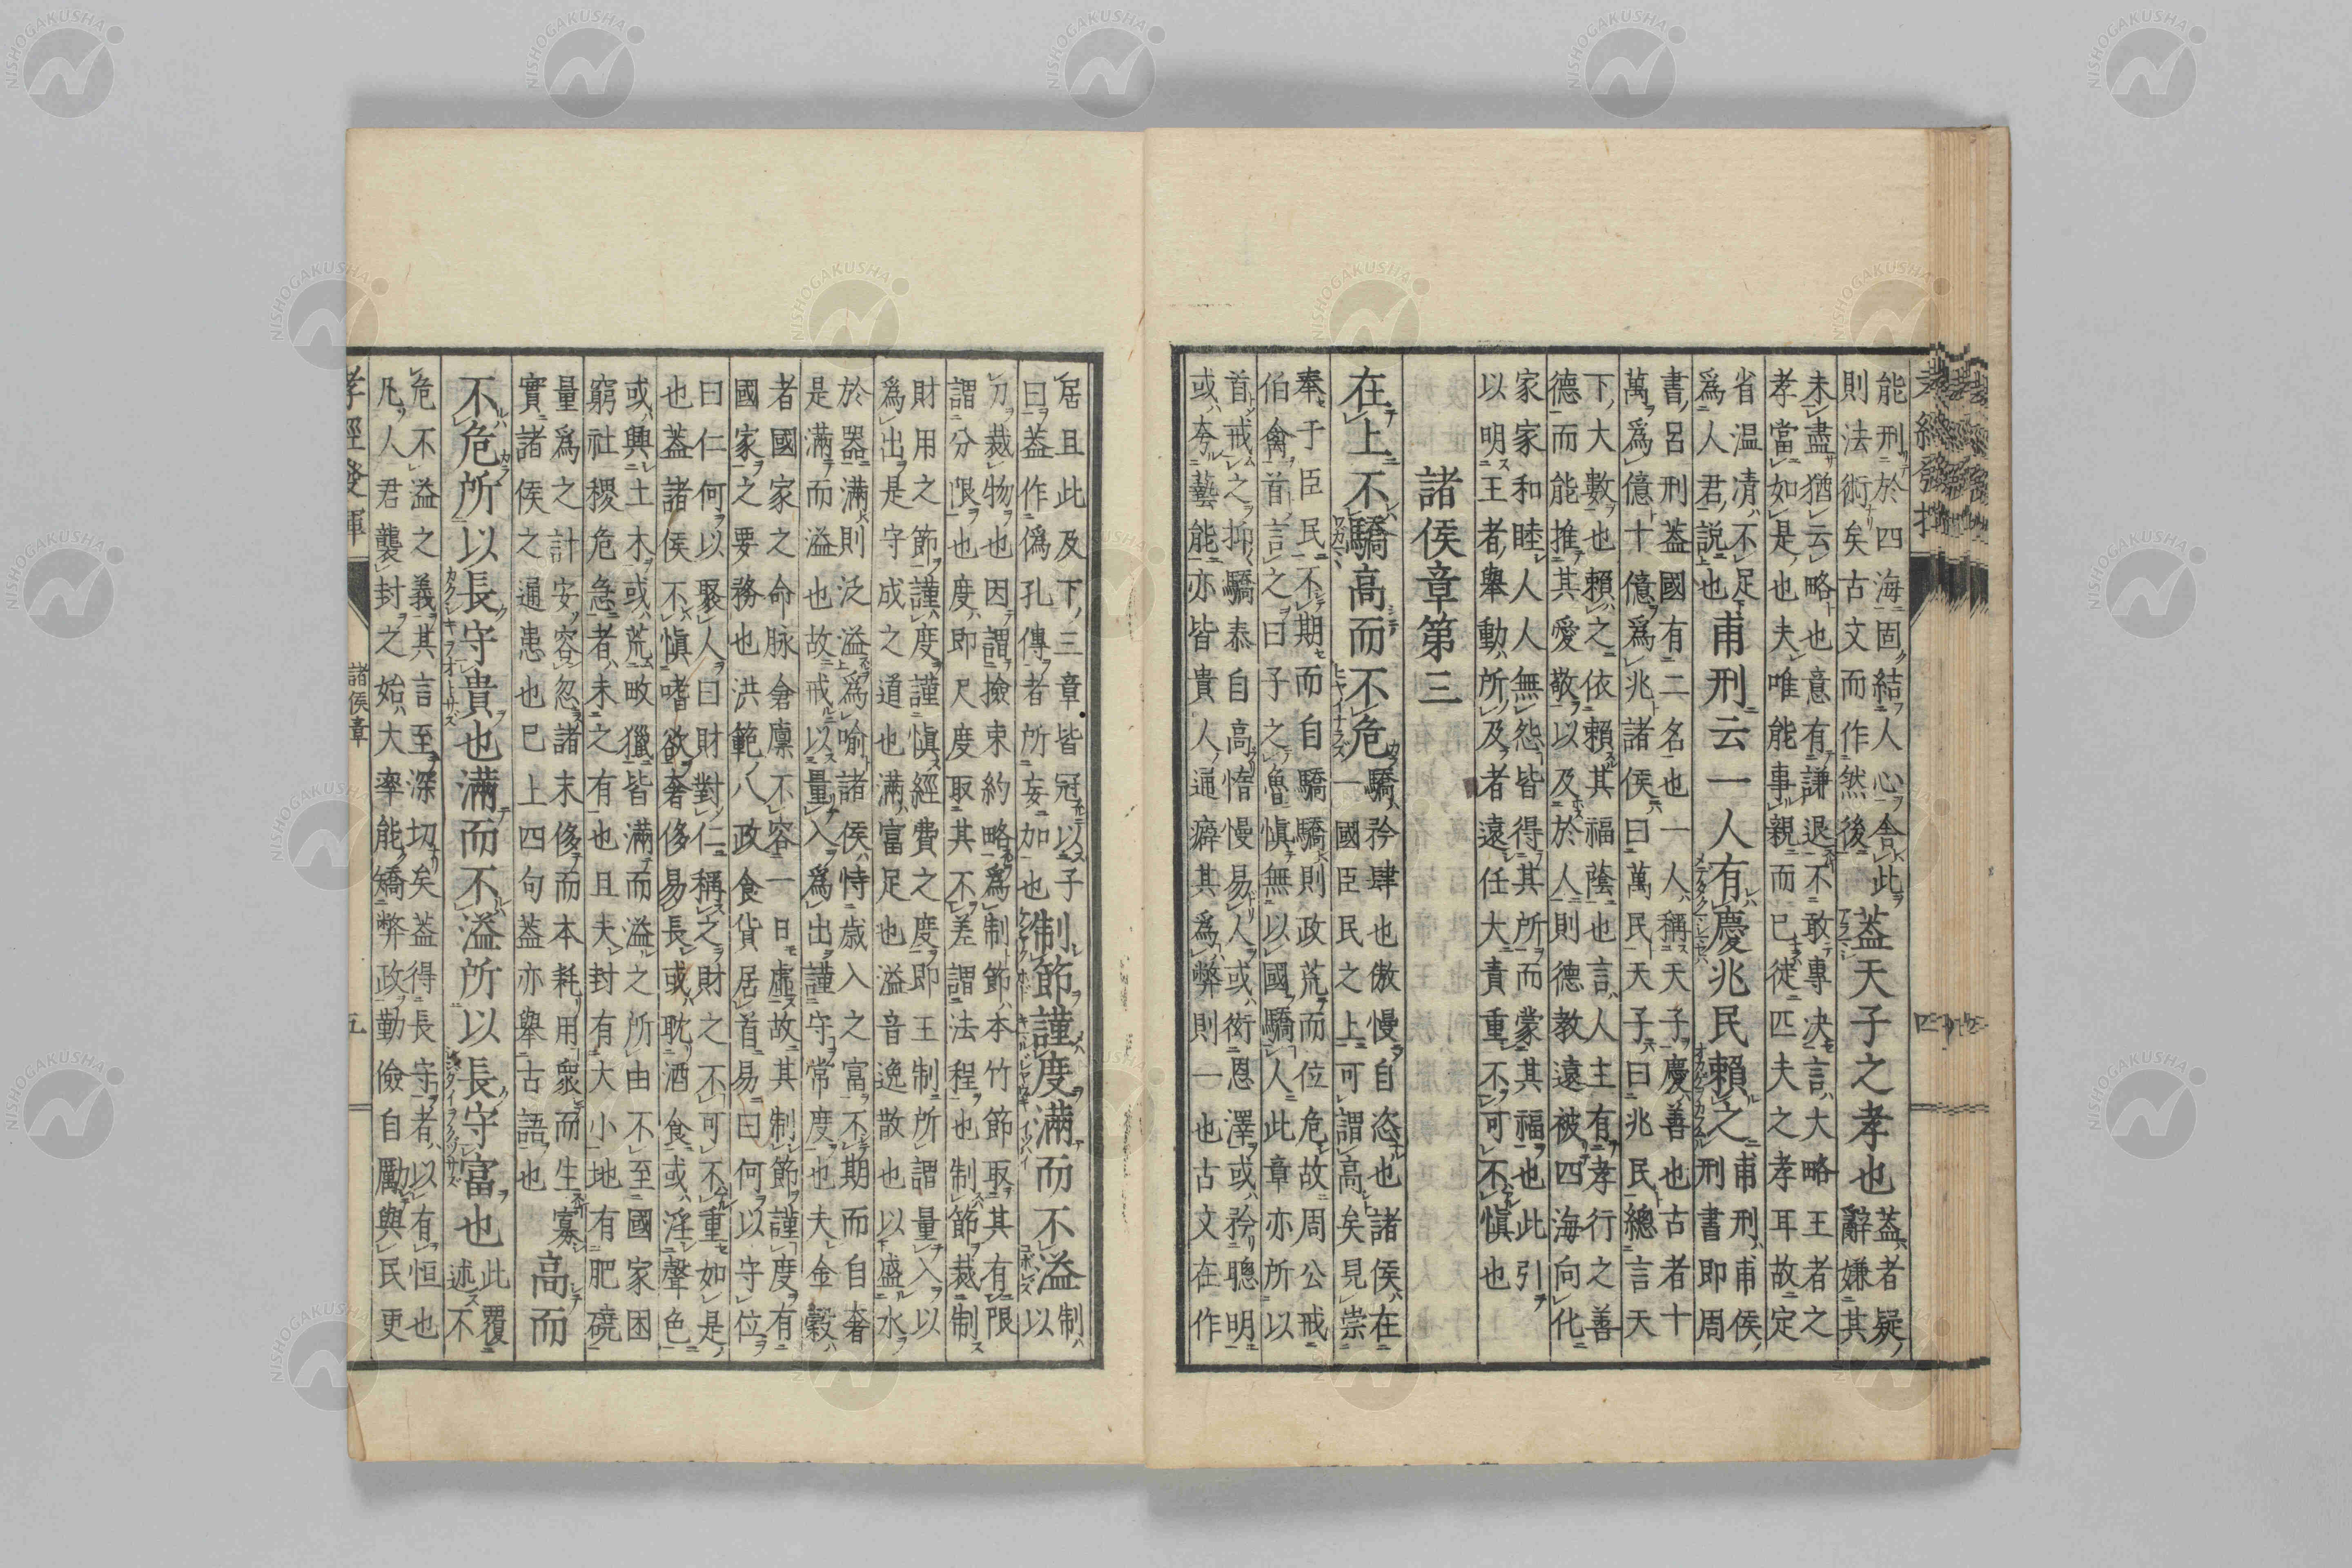 能刑於四海固結人心舍此蓋天子之孝也蓋者疑
則法術矣古文而作然後辭嫌其
未盡猶云略也意有謙退不敢專決言大略王者之
孝當如是也夫唯能事親而已徒匹夫之孝耳故定
省温凊不足甫刑云一人有慶兆民賴之甫刑甫侯
為人君說也刑書即周
書呂刑蓋國有二名也一人稱天子慶善也古者十
萬為億十億為兆諸侯曰萬民天子曰兆民總言天
下大數也賴之依賴其福蔭也言人主有孝行之善
德而能推其愛敬以及於人則德教遠被四海向化
家家和睦人人無怨皆得其所而蒙其福也此引
以明王者舉動所及者遠任大責重不可不慎也
諸侯章第三
在上不驕高而不危驕矜肆也傲慢自恣也諸侯在
一國臣民之上可謂高矣見崇
奉于臣民不期而自驕驕則政荒而位危故周公戒
伯禽首言之曰子之魯慎無以國驕人此章亦所以
首戒之抑驕泰自高惰慢易人或衒恩澤或矜聰明
或夸藝能亦皆貴人通癖其為弊則一也古文在作
居且此及下三章皆冠以子制節謹度滿而不溢制
曰蓋作偽孔傳者所妄加也以
刀裁物也因謂撿束約略為制節本竹節取其有限
謂分限也度即尺度取其不差謂法程也制節裁制
財用之節謹度謹慎經費之度即王制所謂量入以
為出是守成之道也滿富足也溢音逸散也以盛水
於器滿則泛溢為喻諸侯恃歲入之富不期而自奢
是滿而溢也故戒以量入為出謹守常度也夫金穀
者國家之命脉倉廩不容一日虛故其制節謹度有
國家之要務也洪範八政食貨居首易曰何以守位
曰仁何以聚人曰財對仁稱之財之不可不重如是
也蓋諸侯不慎嗜欲奢侈易長或耽酒食或淫聲色
或興土木或荒畋獵皆滿而溢之所由不至國家困
窮社稷危急者未之有也且夫封有大小地有肥磽
量為之計安容忽諸末侈而本耗用衆而生寡高而
實諸侯之通患也已上四句蓋亦舉古語也
不危所以長守貴也滿而不溢所以長守富也此覆
述不
危不溢之義其言至深切矣蓋得長守者以有恒也
凡人君襲封之始大率能矯弊政勤儉自勵與民更
孝經發揮
諸侯章
五
NISHOGAKUSHA